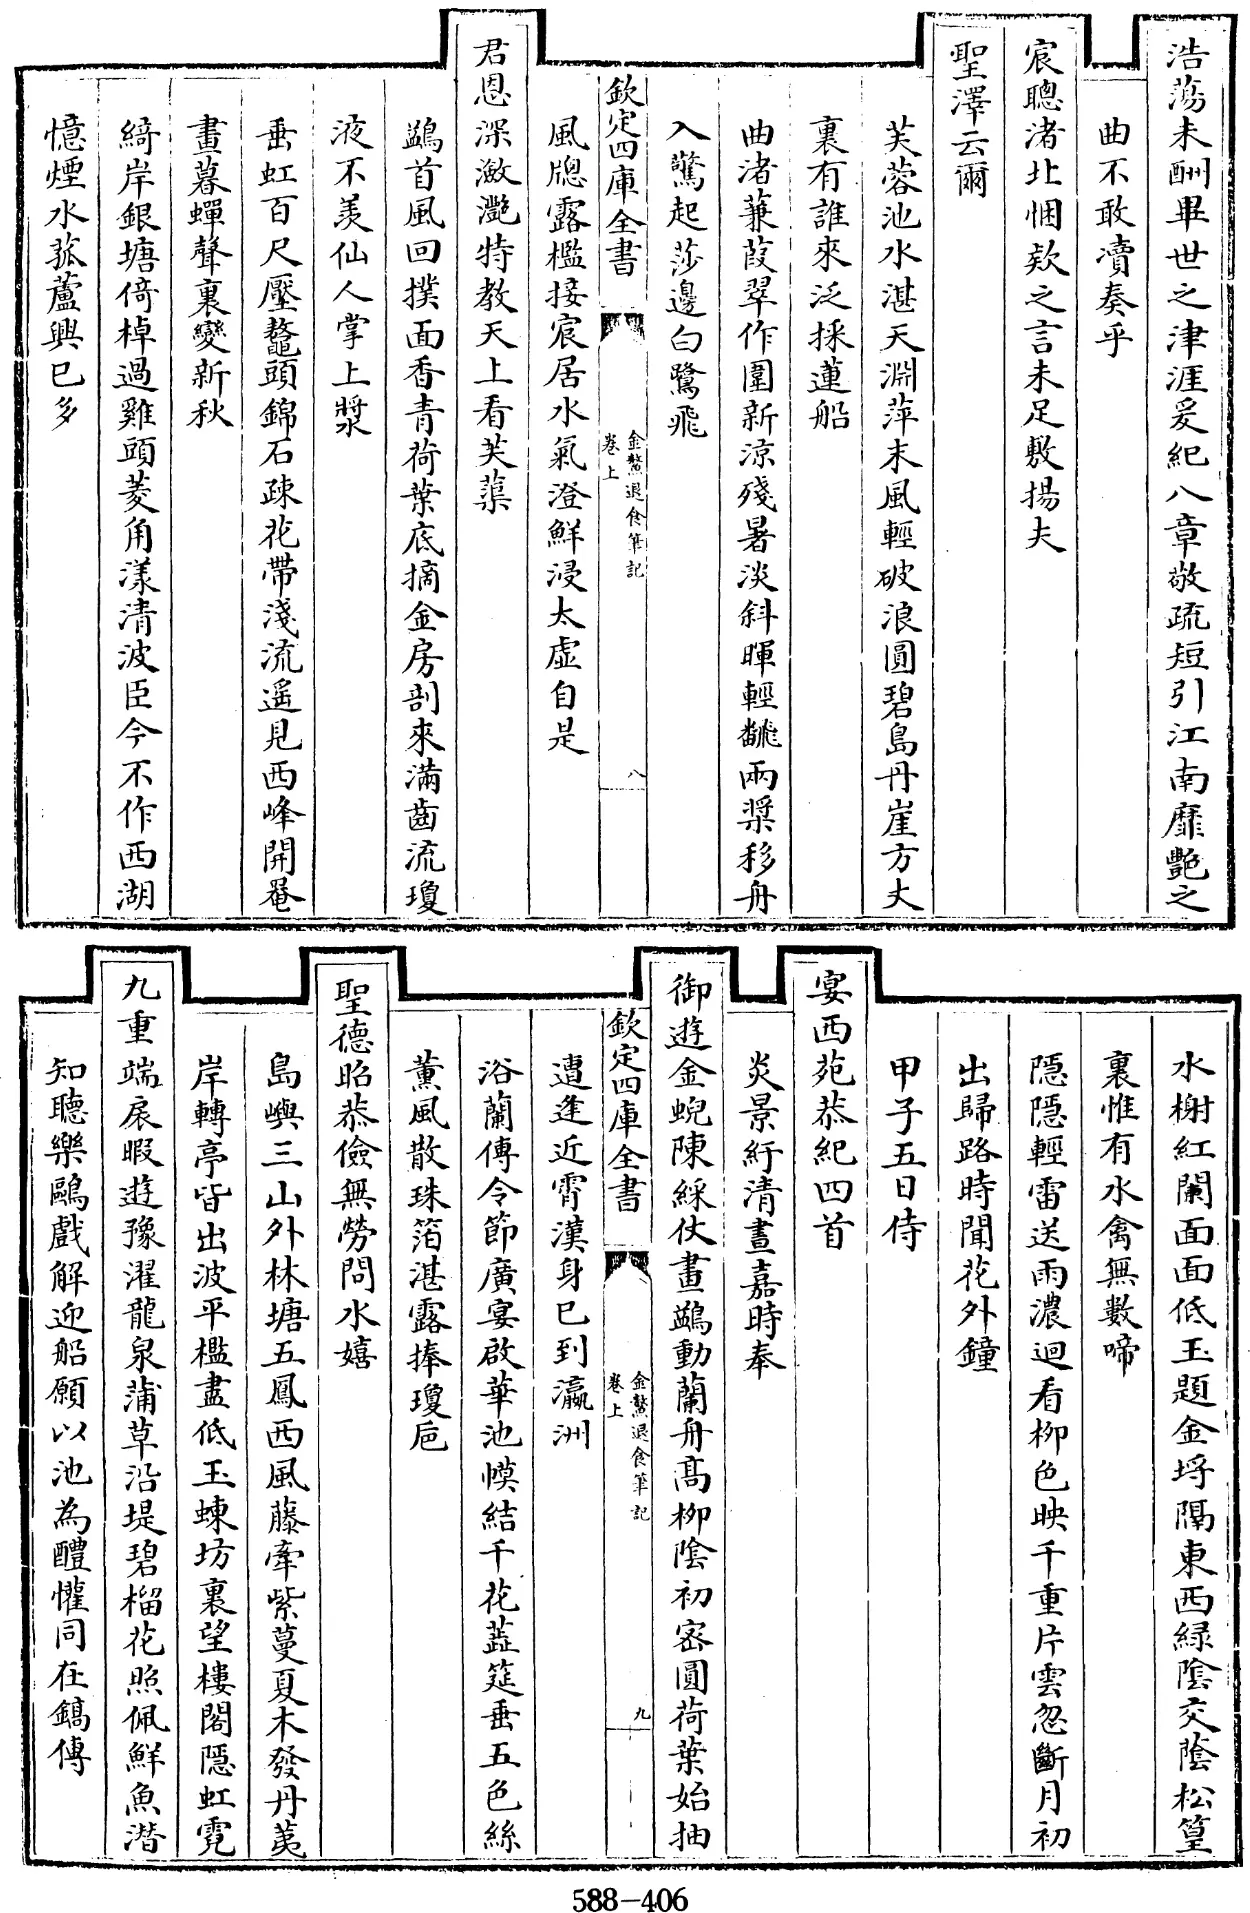 浩蕩未酬畢世之津涯爰紀八章敬疏短引江南靡艷之
曲不敢瀆奏乎
宸聰渚北悃欵之言未足敷揚夫
聖澤云爾
芙蓉池水湛天淵萍末風輕破浪圓碧島丹崖方丈
裏有誰來泛採蓮船
曲渚蒹葭翠作圍新涼殘暑淡斜暉輕飜兩槳移舟
入驚起莎邊白鷺飛
欽定四庫全書
金鰲退食筆記
卷上
八
風牎露檻接宸居水氣澄鮮浸太虛自是
君恩深瀲灔特教天上看芙蕖
鷁首風回撲面香青荷葉底摘金房剖來滿齒流瓊
液不羨仙人掌上漿
垂虹百尺壓鼇頭錦石疎花帶淺流遥見西峰開罨
畫暮蟬聲裏變新秋
綺岸銀塘倚棹過雞頭菱角漾清波臣今不作西湖
憶煙水菰蘆興已多
水榭紅闌面面低玉題金埒隔東西緑陰交蔭松篁
裏惟有水禽無數啼
隱隱輕雷送雨濃迴看柳色映千重片雲忽斷月初
出歸路時聞花外鐘
甲子五日侍
宴西苑恭紀四首
炎景紆清晝嘉時奉
御遊金蜺陳綵仗畫鷁動蘭舟高柳陰初宻圓荷葉始抽
欽定四庫全書
金鰲退食筆記
卷上
九
遭逢近霄漢身已到瀛洲
浴蘭傳令節廣宴啟華池幙結千花葢筵垂五色絲
薰風散珠箔湛露捧瓊巵
聖德昭恭儉無勞問水嬉
島嶼三山外林塘五鳳西風藤牽紫蔓夏木發丹荑
岸轉亭皆出波平檻盡低玉蝀坊裏望樓閣隱虹霓
九重端扆暇遊豫濯龍泉蒲草沿堤碧榴花照佩鮮魚潛
知聽樂鷗戲解迎船願以池為醴懽同在鎬傳
588-406